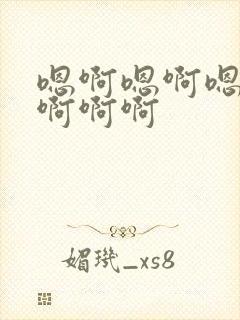 嗯啊嗯啊嗯
啊啊啊
媚璣_xs8